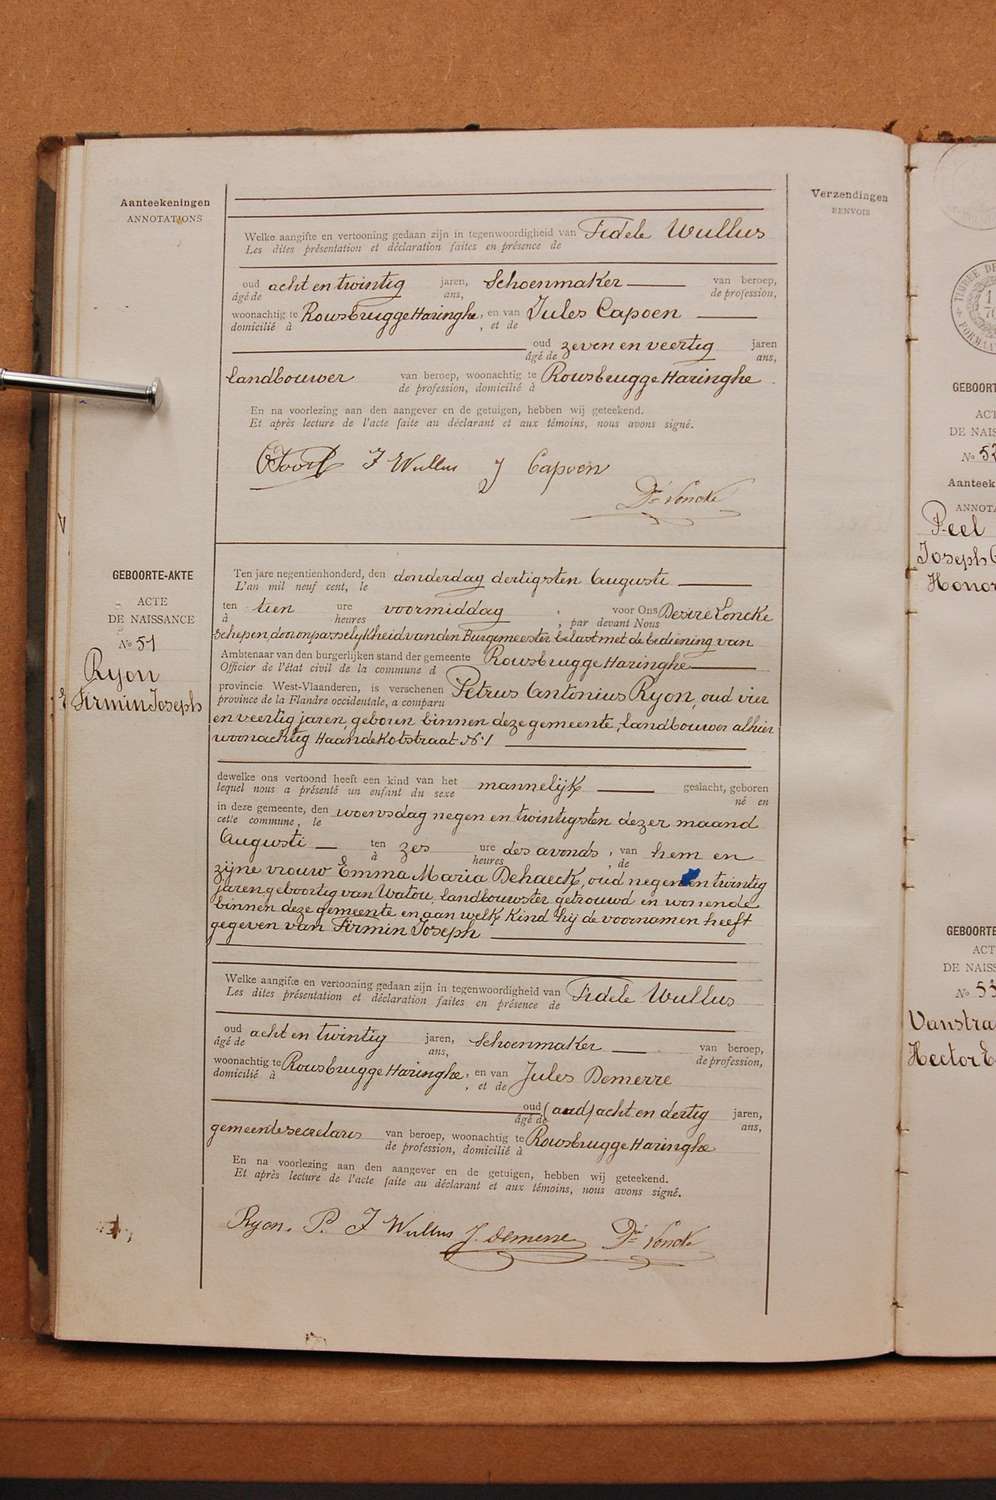 Aanteekeningen
ANNOTATIONS
Verzendingen
RENVOIS
Welke aangifte en vertooning gedaan zijn in tegenwoordigheid van Fidele Wullus
Les dites présentation et déclaration faites en présence de
oud acht en twintig jaren, Schoenmaker van beroep,
âgé de ans, de profession,
woonachtig te Rousbrugge Haringhe, en van Jules Capoen
domicilié à , et de
oud zeven en veertig jaren
âgé de ans,
landbouwer van beroep, woonachtig te Rousbrugge Haringhe.
de profession, domicilié à
En na voorlezing aan den aangever en de getuigen, hebben wij geteekend.
Et après lecture de l'acte faite au déclarant et aux témoins, nous avons signé.
F Wullus J Capoen
Dré Loncke
GEBOORTE-AKTE
ACTE
DE NAISSANCE
No 51
Ryon
Firmin Joseph
Ten jare negentienhonderd, den donderdag dertigsten Augusti
L'an mil neuf cent, le
ten tien ure voormiddag ; voor Ons Desiré Loncke
à heures , par devant Nous
Schepen door onpasselijkheid van den Burgmeester belast met de bediening van
Ambtenaar van den burgerlijken stand der gemeente Rousbrugge Haringhe
Officier de l'état civil de la commune d
provincie West-Vlaanderen, is verschenen Petrus Antonius Ryon, oud vier
province de la Flandre occidentale, a comparu
en veertig jaren, geboren binnen deze gemeente, landbouwer alhier
woonachtig Haandekotstraat No 1
dewelke ons vertoond heeft een kind van het mannelijk geslacht, geboren
lequel nous a présenté un enfant du sexe né en
in deze gemeente, den woensdag negen en twintigsten dezer maand
cette commune, le
Augusti ten zes ure des avonds, van hem en
à heures , de
zijne vrouw Emma Maria Dehaeck, oud negen en twintig
jaren geboortig van Watou, landbouwster getrouwd en wonende
binnen deze gemeente en aan welk kind hij de voornamen heeft
gegeven van Firmin Joseph
Welke aangifte en vertooning gedaan zijn in tegenwoordigheid van Fidele Wullus
Les dites présentation et déclaration faites en présence de
oud acht en twintig jaren, Schoenmaker van beroep,
âgé de ans, de profession,
woonachtig te Rousbrugge Haringhe, en van Jules Demerre
domicilié à , et de
oud (aud) acht en dertig jaren,
âgé de ans,
gemeentesecretaris van beroep, woonachtig te Rousbrugge Haringhe
de profession, domicilié à
En na voorlezing aan den aangever en de getuigen, hebben wij geteekend.
Et après lecture de l'acte faite au déclarant et aux témoins, nous avons signé.
Ryon. P. F Wullus J. Demerre Dré Loncke
TIMBRE DE
GEBOORTE
ACT
DE NAIS
No 52
Aanteek
ANNOTA
Peel
Joseph
Honor
GEBOORTE
ACT
DE NAISS
No 53
Vanstra
Hector E